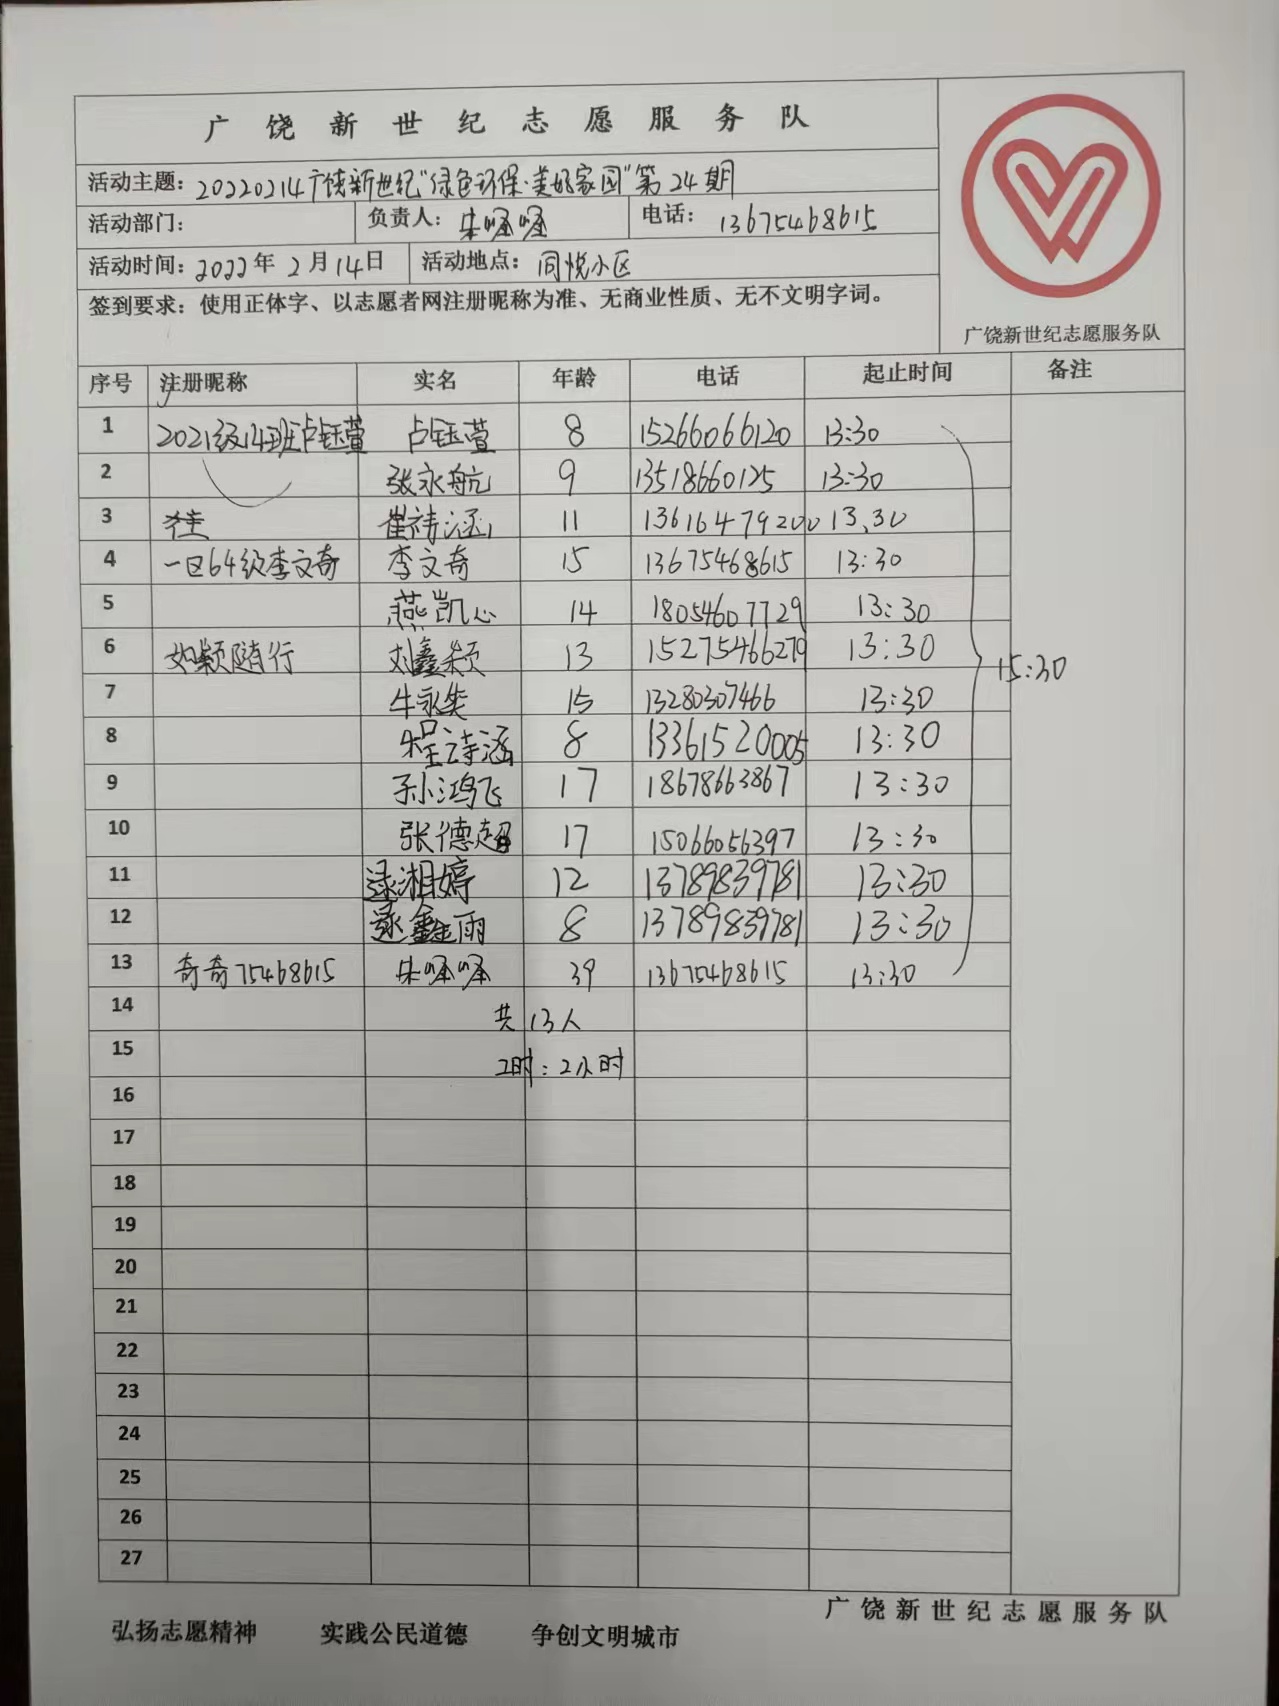 广饶新世纪志愿服务队
活动主题：20220214广饶新世纪"绿色环保·美好家园"第24期
活动部门： 负责人：朱峰峰 电话：13675468615
活动时间：2022年2月14日 活动地点：同悦小区
签到要求：使用正体字、以志愿者网注册昵称为准、无商业性质、无不文明字词。
广饶新世纪志愿服务队
序号 注册昵称 实名 年龄 电话 起止时间 备注
1 2021级14班卢钰萱 卢钰萱 8 15266066120 13:30
2 张永航 9 13518660125 13:30
3 崔祎涵 11 13616479200 13.30
4 一区64级李文奇 李文奇 15 13675468615 13:30
5 燕凯心 14 18054607729 13:30
6 如颖随行 刘鑫颖 13 15275466279 13:30
15:30
7 牛永 15 13280307466 13:30
8 程诗涵 8 13361520005 13:30
9 孙鸿飞 17 18678663867 13:30
10 张德超 17 15066056397 13:30
11 逯湘婷 12 13789839781 13:30
12 逯鑫雨 8 13789839781 13:30
13 奇奇75468615 39 13675468615 13:30
14 共13人
15 工时：2小时
16
17
18
19
20
21
22
23
24
25
26
27
广饶新世纪志愿服务队
弘扬志愿精神 实践公民道德 争创文明城市